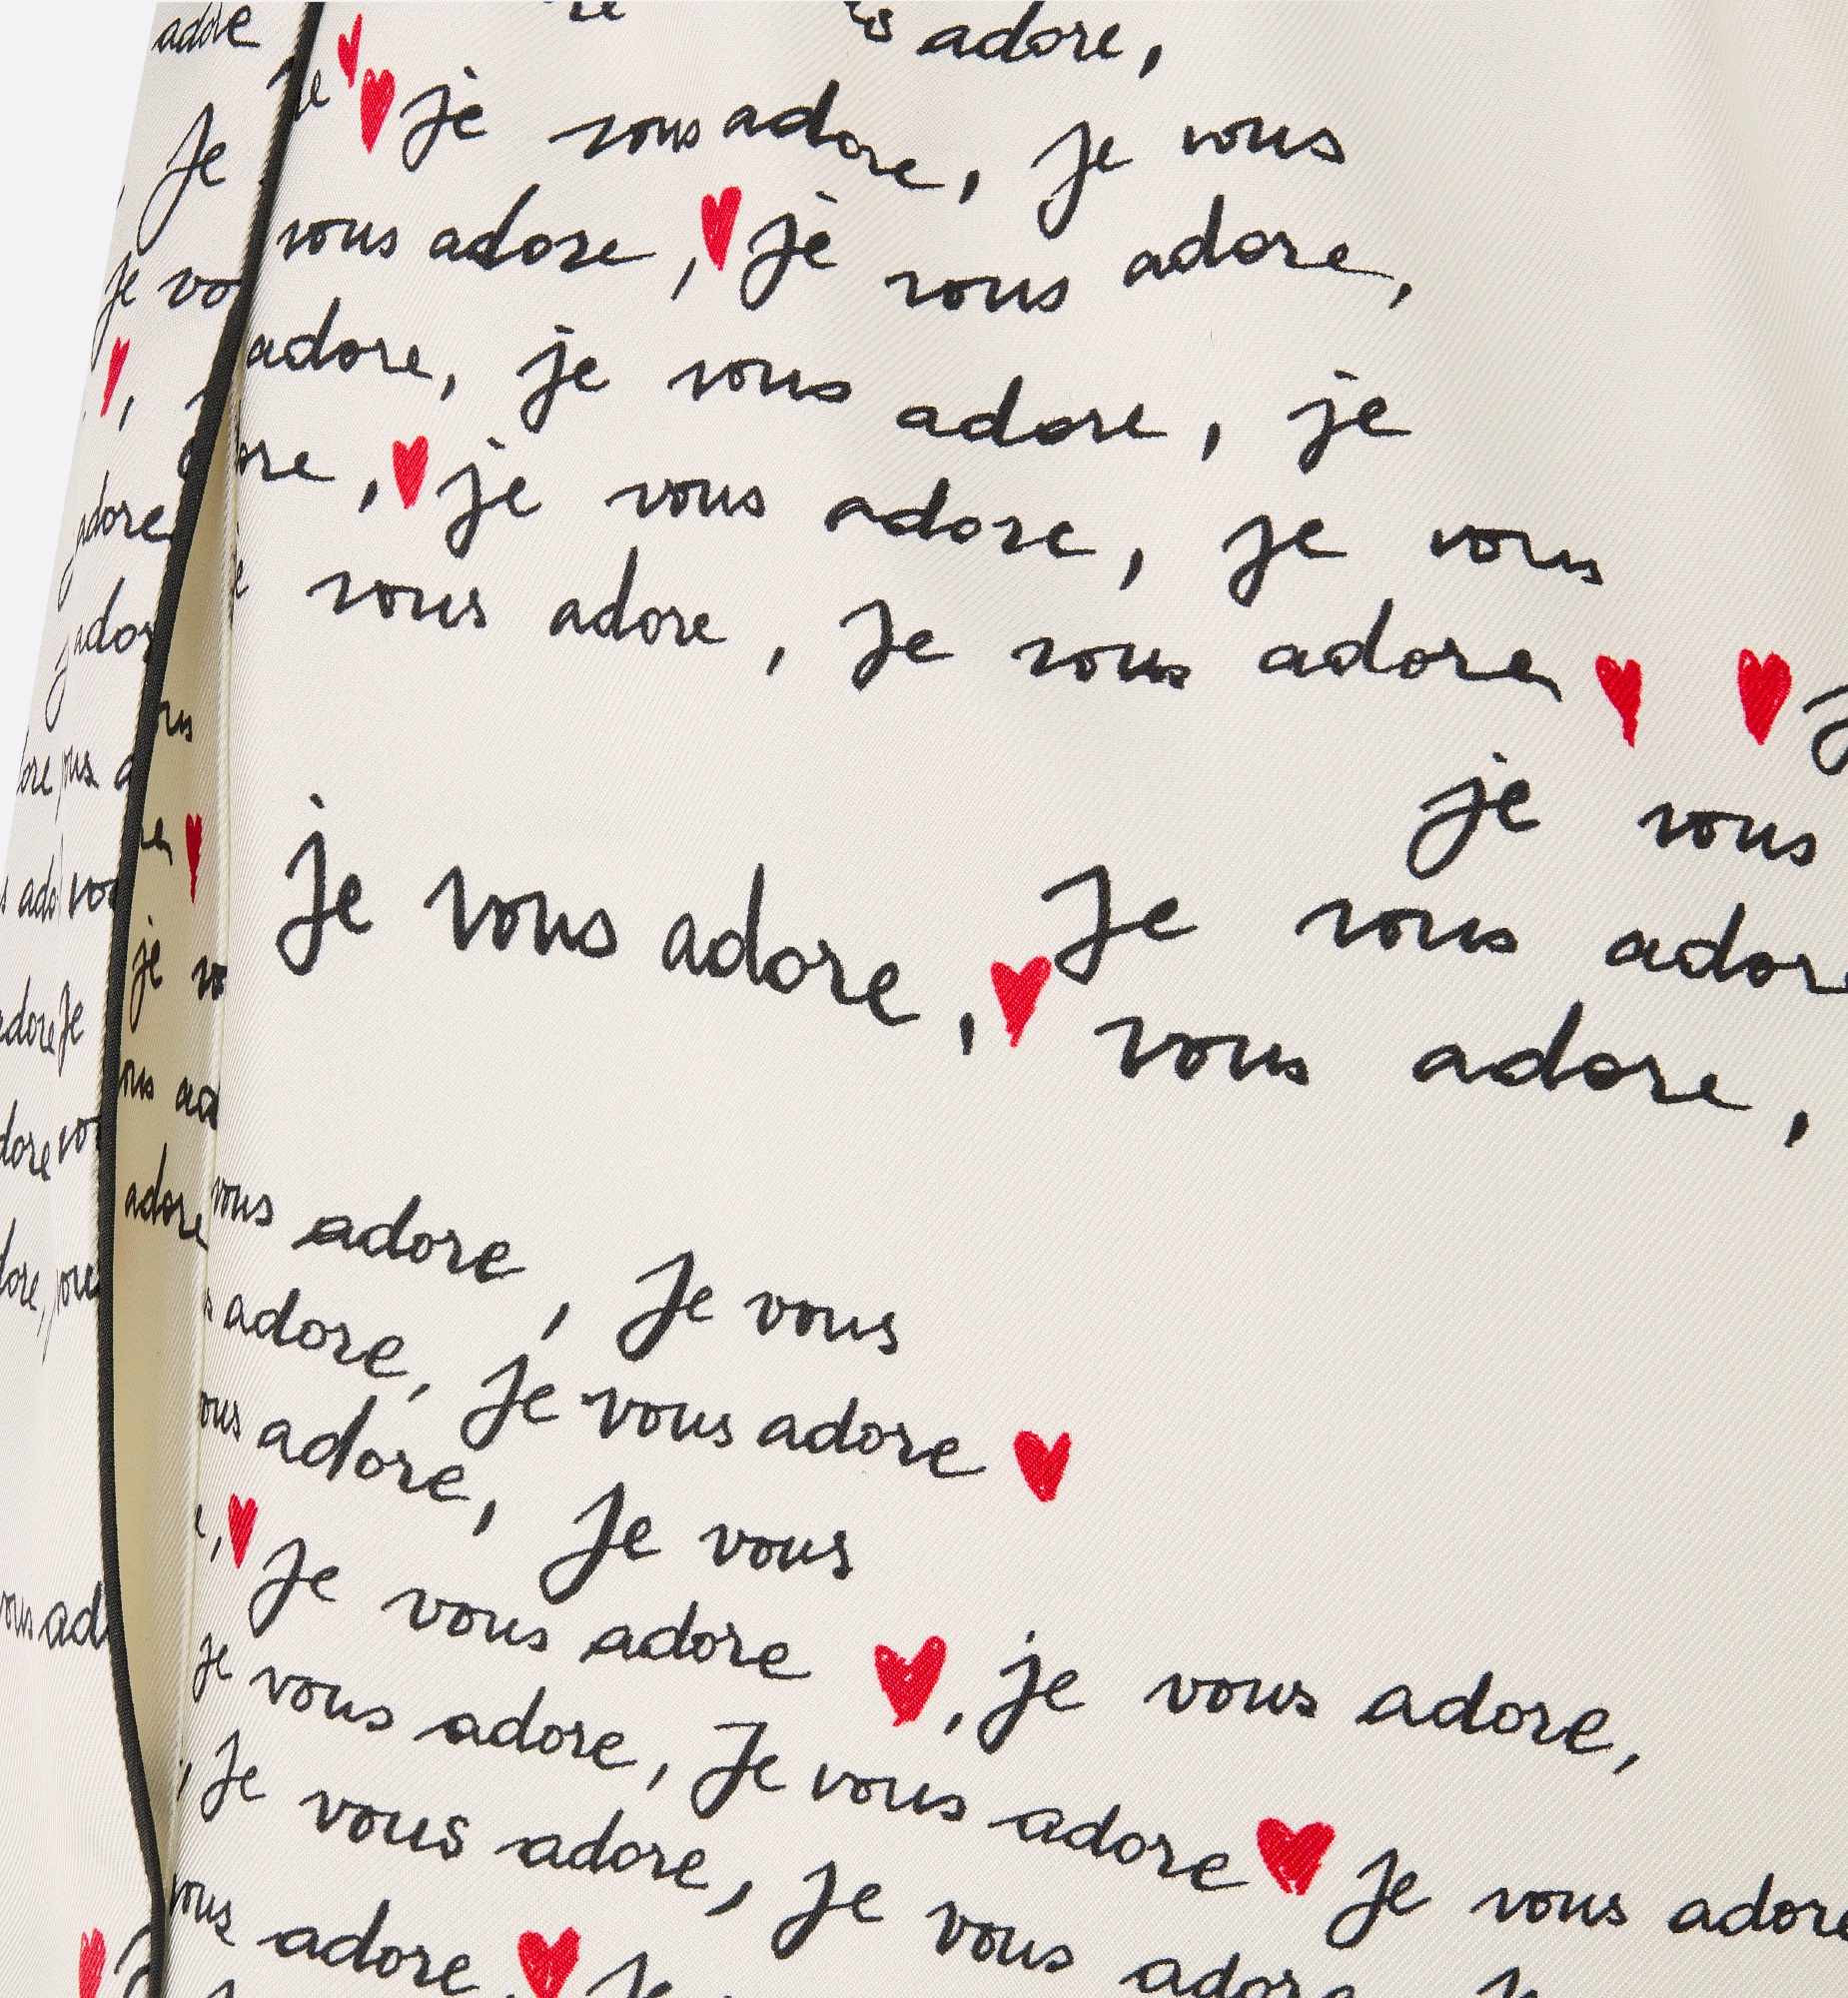 adore
adore,
je vous adore, je vous
Je
vous adore, je vous adore,
je
adore, je vous adore, je
, je vous adore, je vous
adore
vous adore, je vous adore
je vous
je vous adore, Je vous adore
vous adore,
je
adore Je
adore
vous adore, Je vous
adore, Je vous adore
adore, Je vous
, Je vous adore, je vous adore,
je vous adore, Je vous adore Je vous adore
, Je vous adore, je vous adore
vous adore, Je